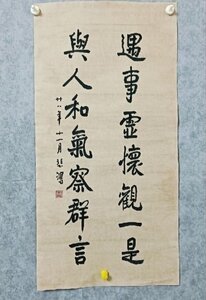 遇事虛懷觀一是
與人和氣察群言
廿八年十一月悲鴻